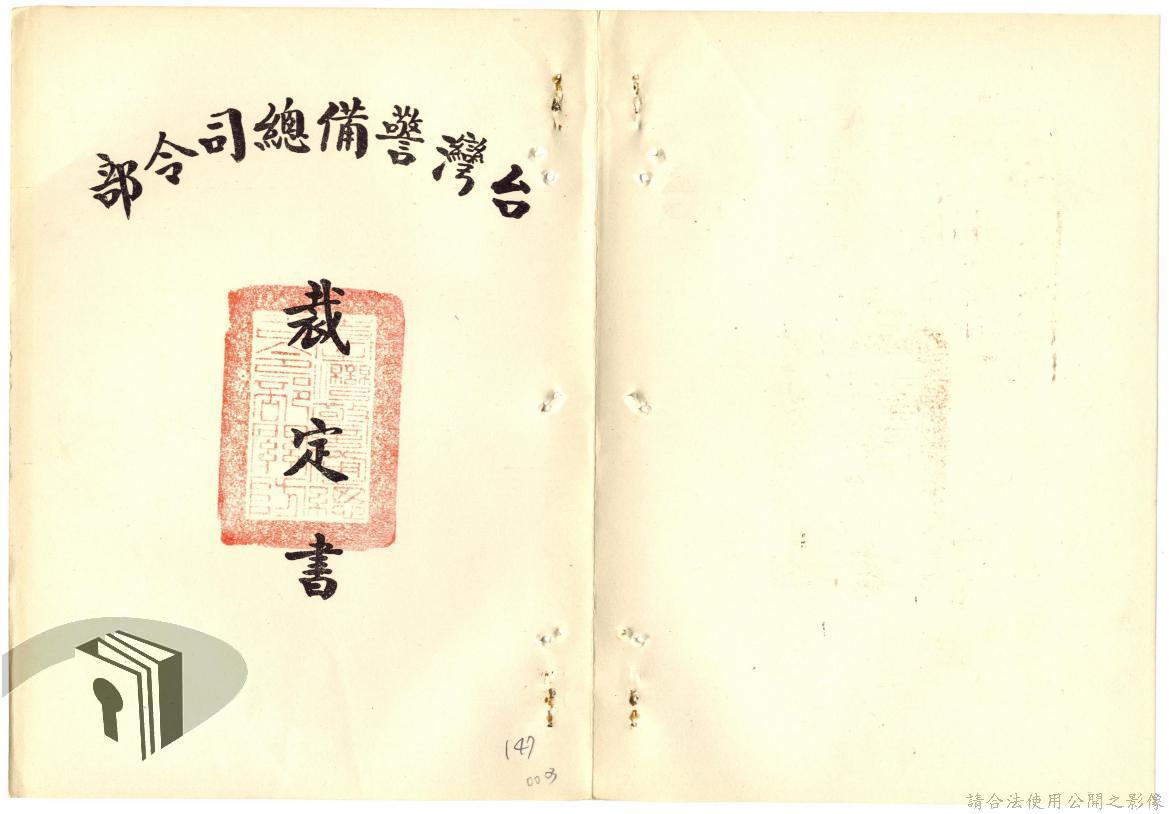 台灣警備總司令部
裁定書
147
003
請合法使用公開之影像